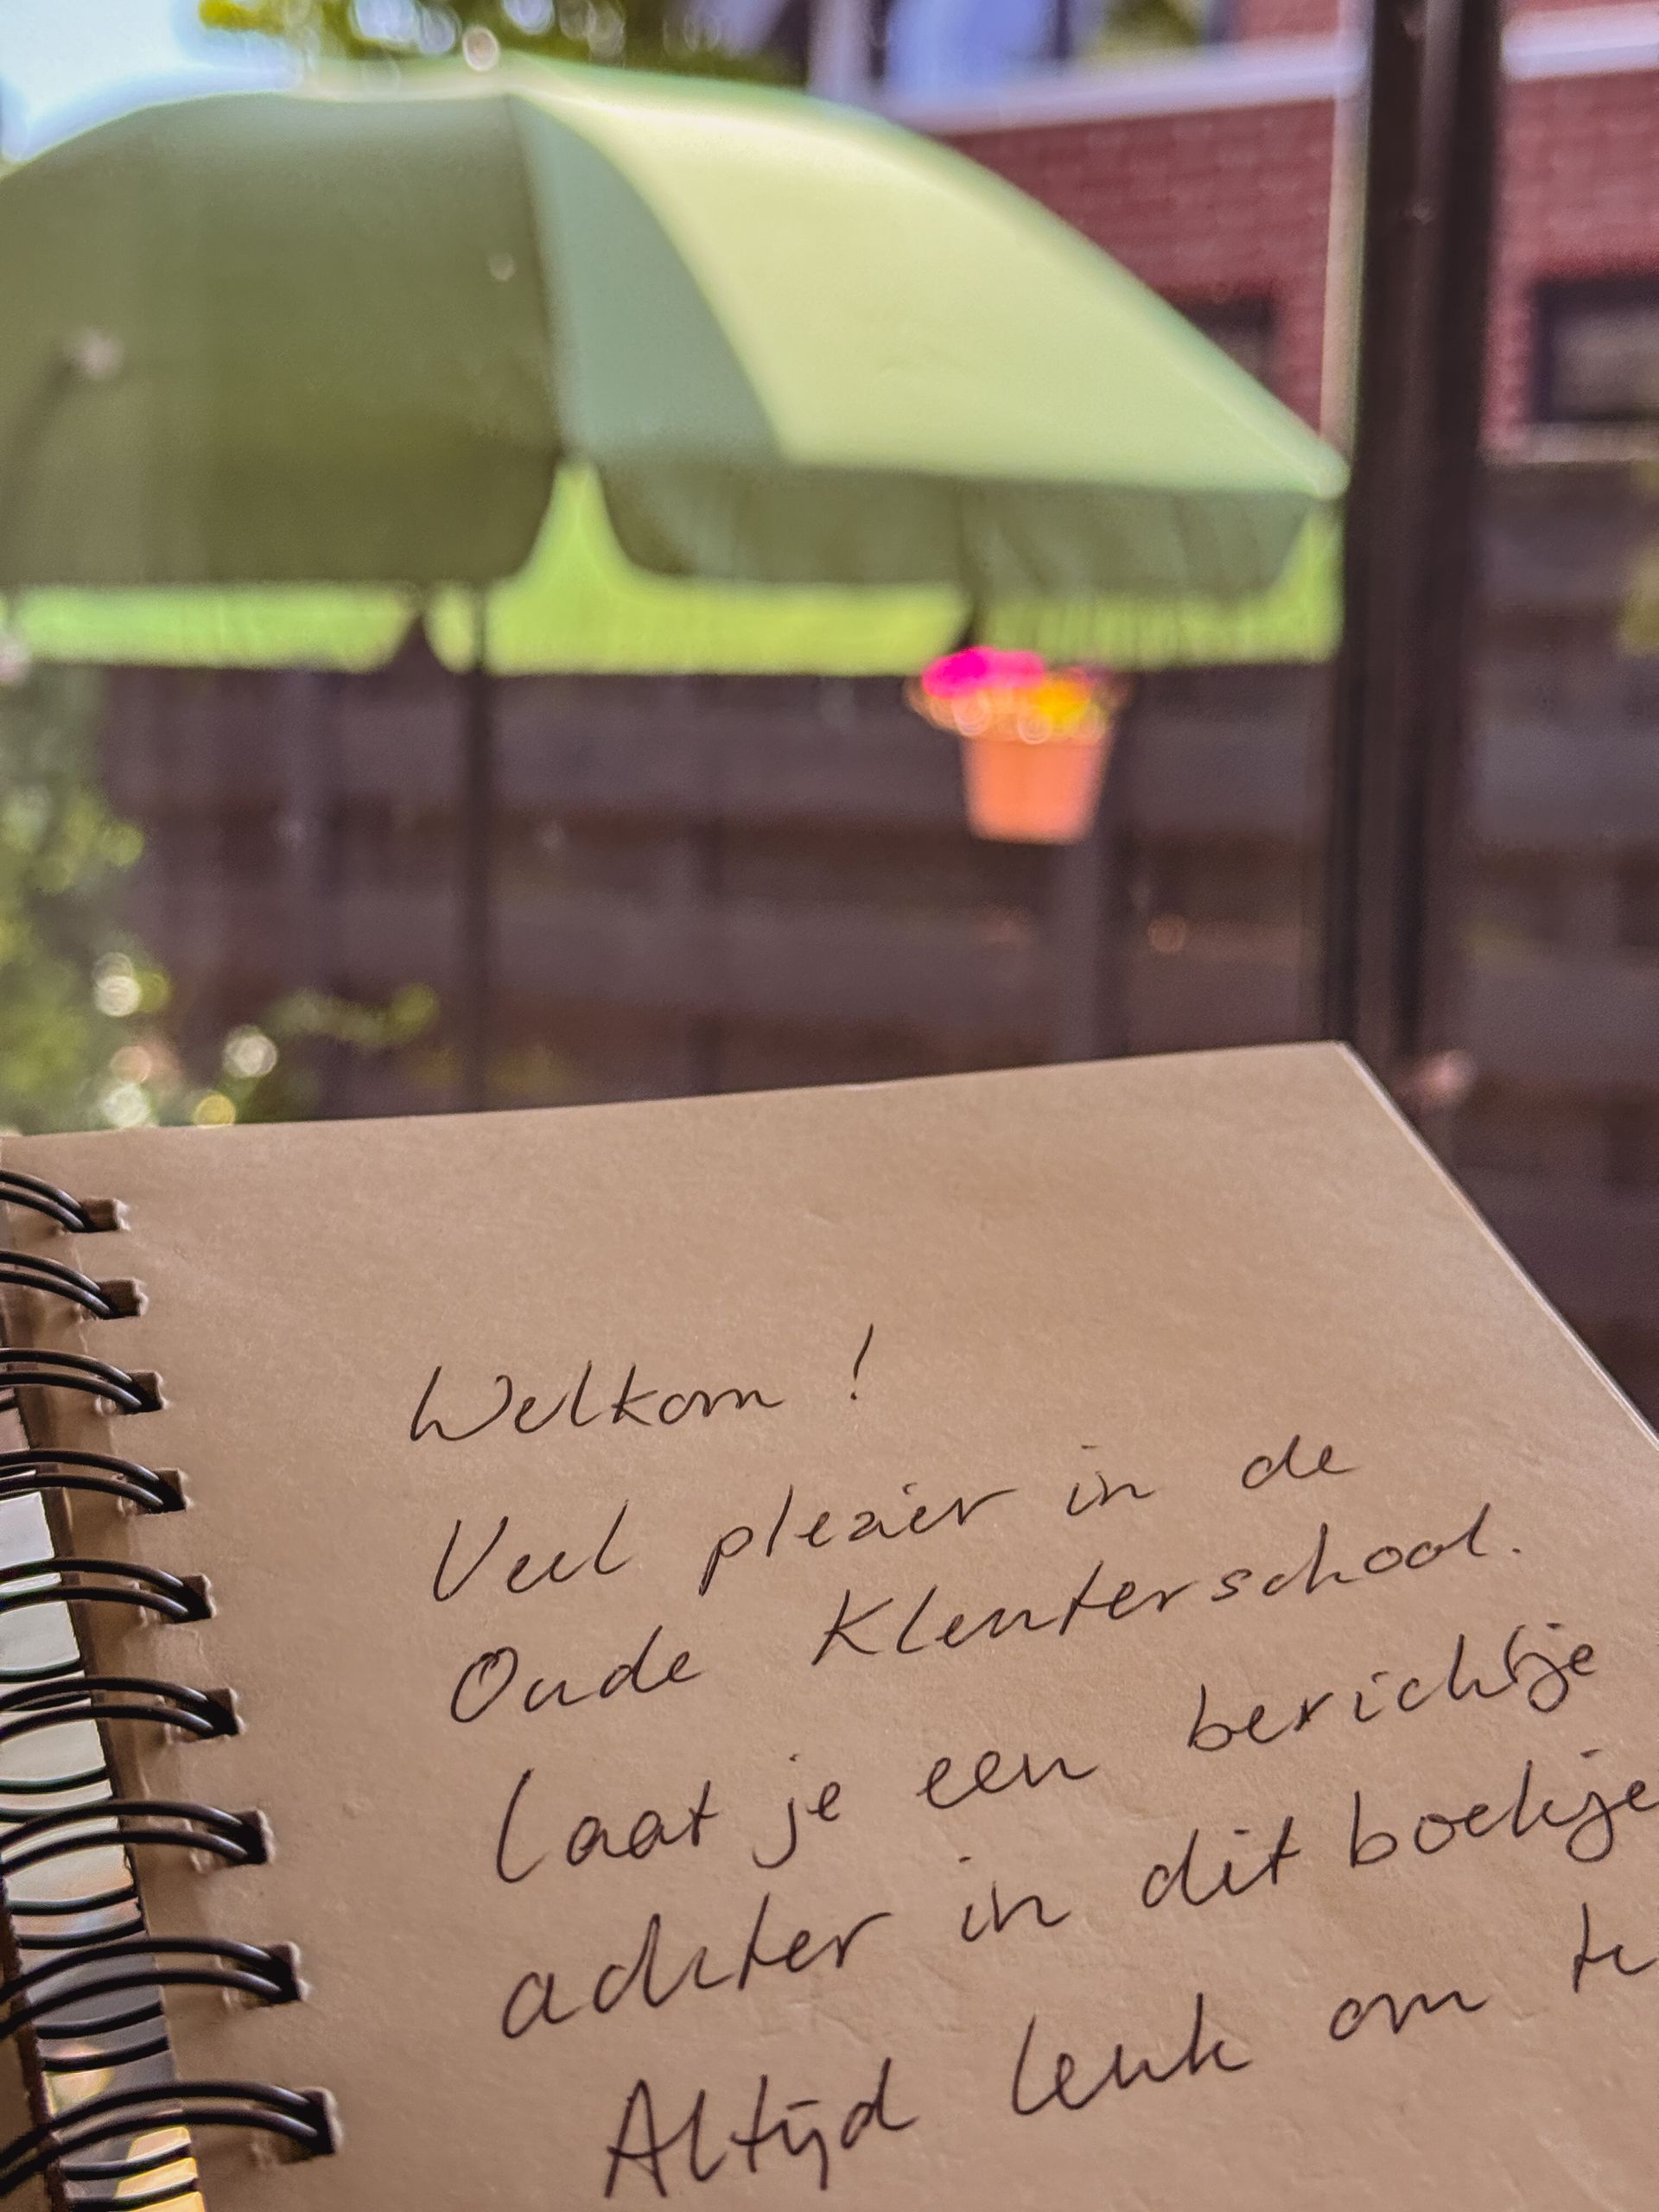 Welkom !
Veel plezier in de
Oude Kleuterschool.
Laat je een berichtje
achter in dit boekje
Altijd leuk om te